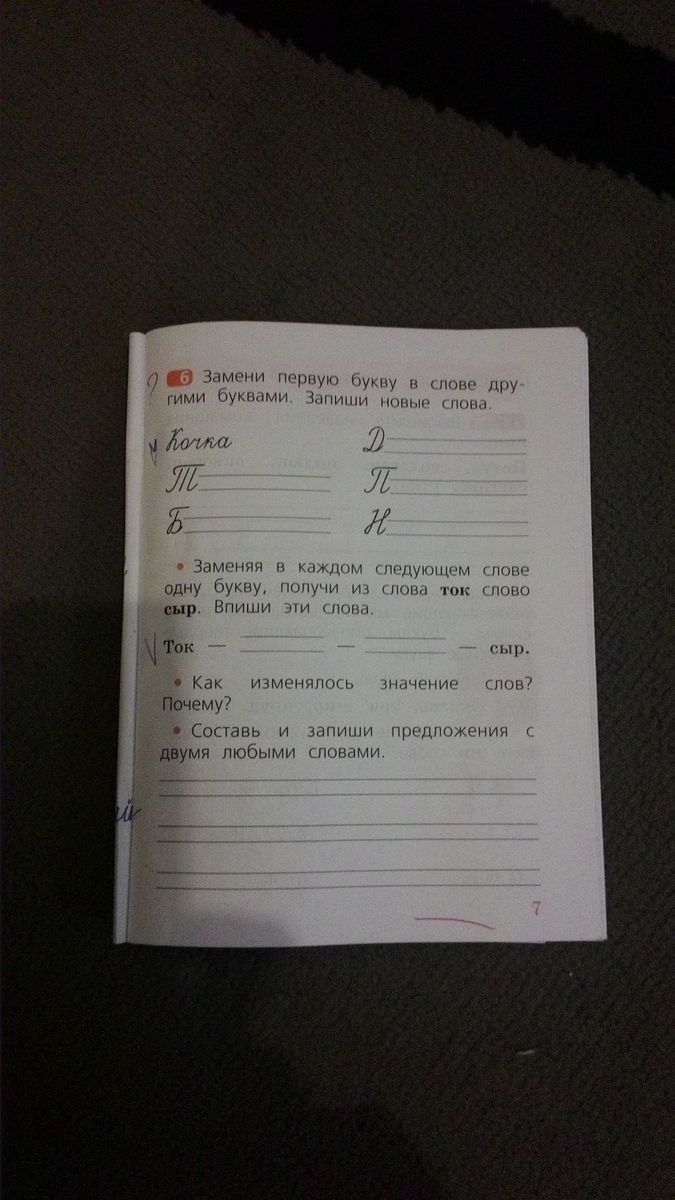 ? 6 Замени первую букву в слове дру-
гими буквами. Запиши новые слова.
Кочка Д
Т П
Б Н
• Заменяя в каждом следующем слове
одну букву, получи из слова ток слово
сыр. Впиши эти слова.
Ток — — — сыр.
• Как изменялось значение слов?
Почему?
• Составь и запиши предложения с
двумя любыми словами.
ий
7